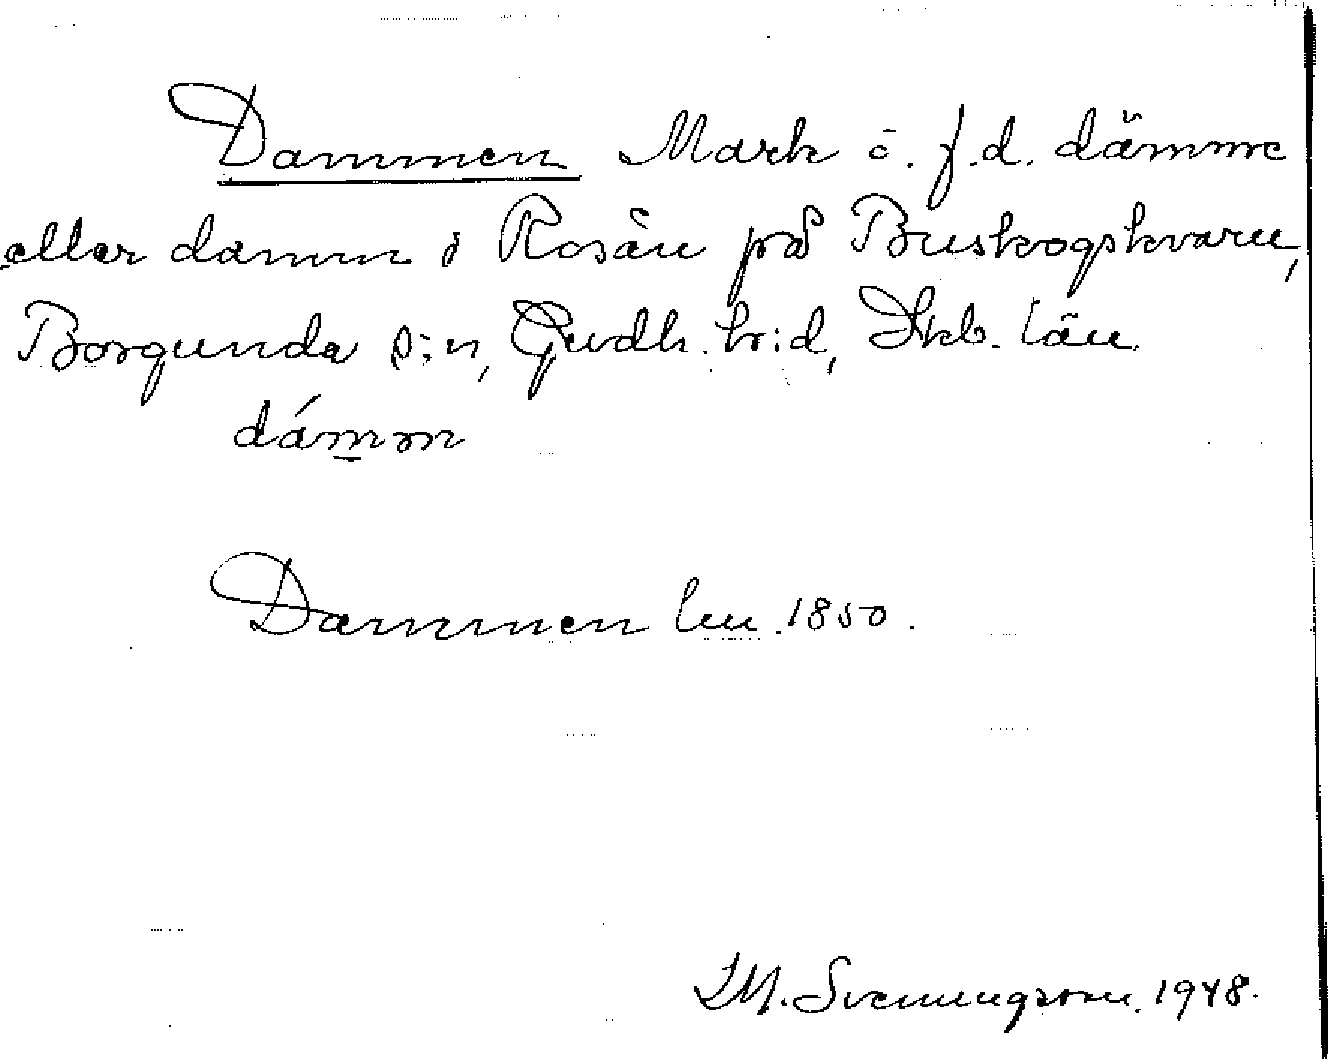 Dammen Mark o. f.d. dämme
eller damm i Rosån på Buskogskvarn,
Borgunda s:n, Gudh. hr:d, Skb. län
dámm
Dammen lm. 1850.
I.M. Svenningsson. 1948.